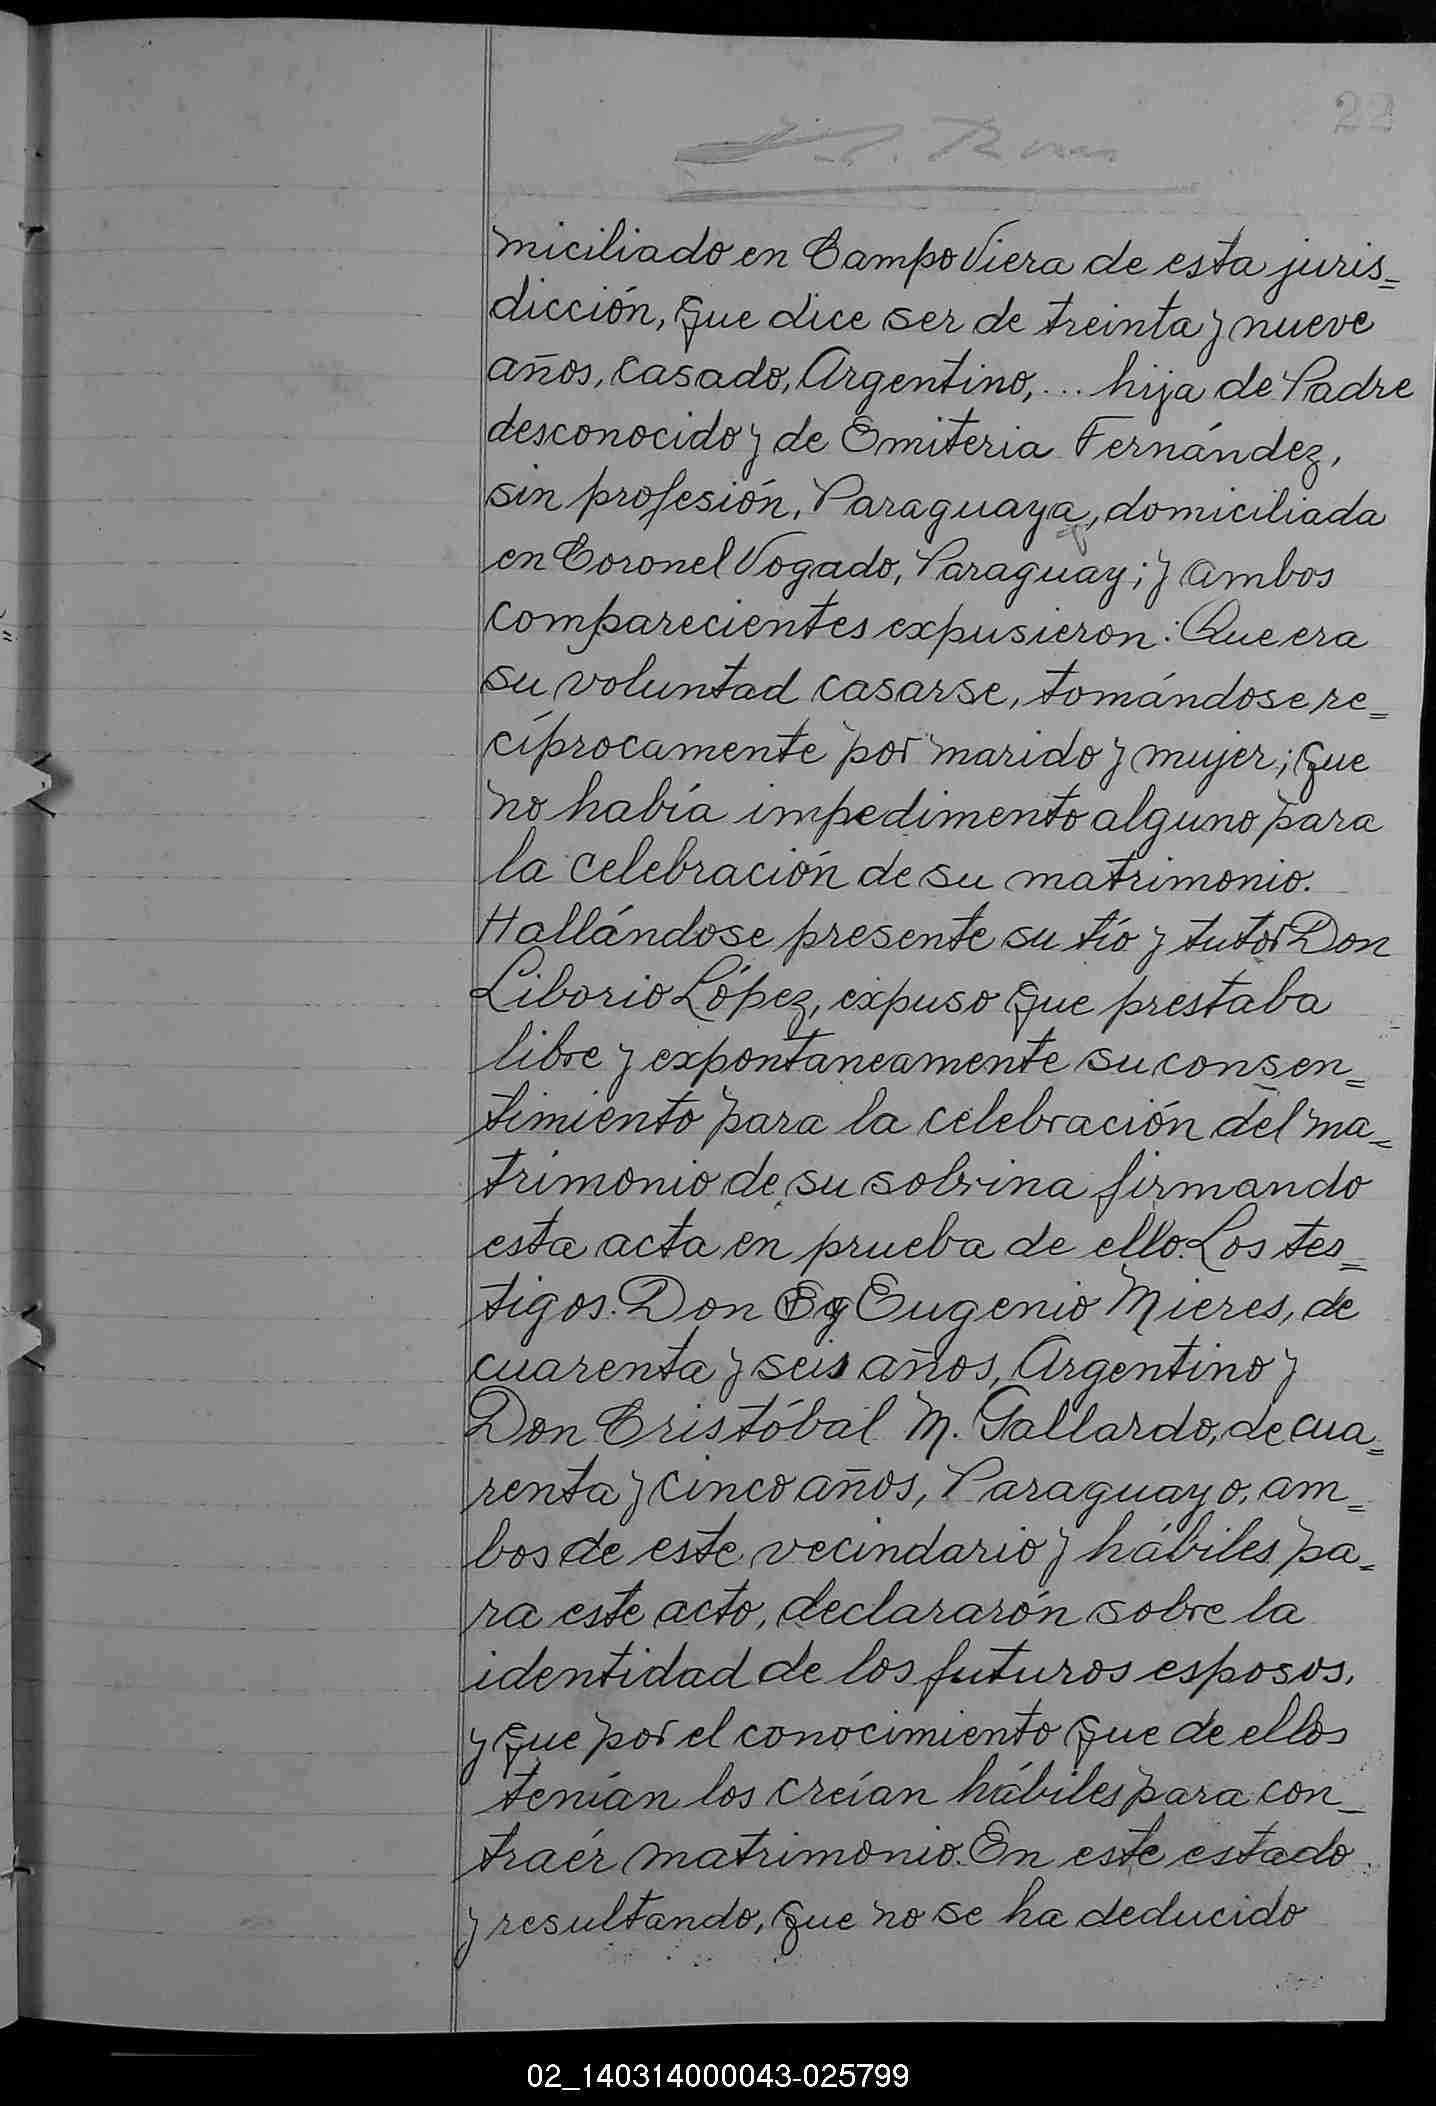 22
miciliado en Campo Viera de esta juris=
dicción, que dice ser de treinta y nueve
años, casado, Argentino, ... hija de Padre
desconocido y de Emiteria Fernández,
sin profesión, Paraguaya, domiciliada
en Coronel Vogado, Paraguay; y ambos
comparecientes expusieron: Que era
su voluntad casarse, tomándose re=
cíprocamente por marido y mujer; que
no había impedimento alguno para
la celebración de su matrimonio.
Hallándose presente su tío y tutor Don
Liborio López, expuso que prestaba
libre y expontaneamente su consen=
timiento para la celebración del ma=
trimonio de su sobrina firmando
esta acta en prueba de ello. Los tes=
tigos: Don Eg Eugenio Mieres, de
cuarenta y seis años, Argentino y
Don Cristóbal M. Gallardo, de cua=
renta y cinco años, Paraguayo, am=
bos de este vecindario y hábiles pa=
ra este acto, declararón sobre la
identidad de los futuros esposos,
y que por el conocimiento que de ellos
tenían los creían hábiles para con_
traér matrimonio. En este estado
y resultando, que no se ha deducido
02_140314000043-025799